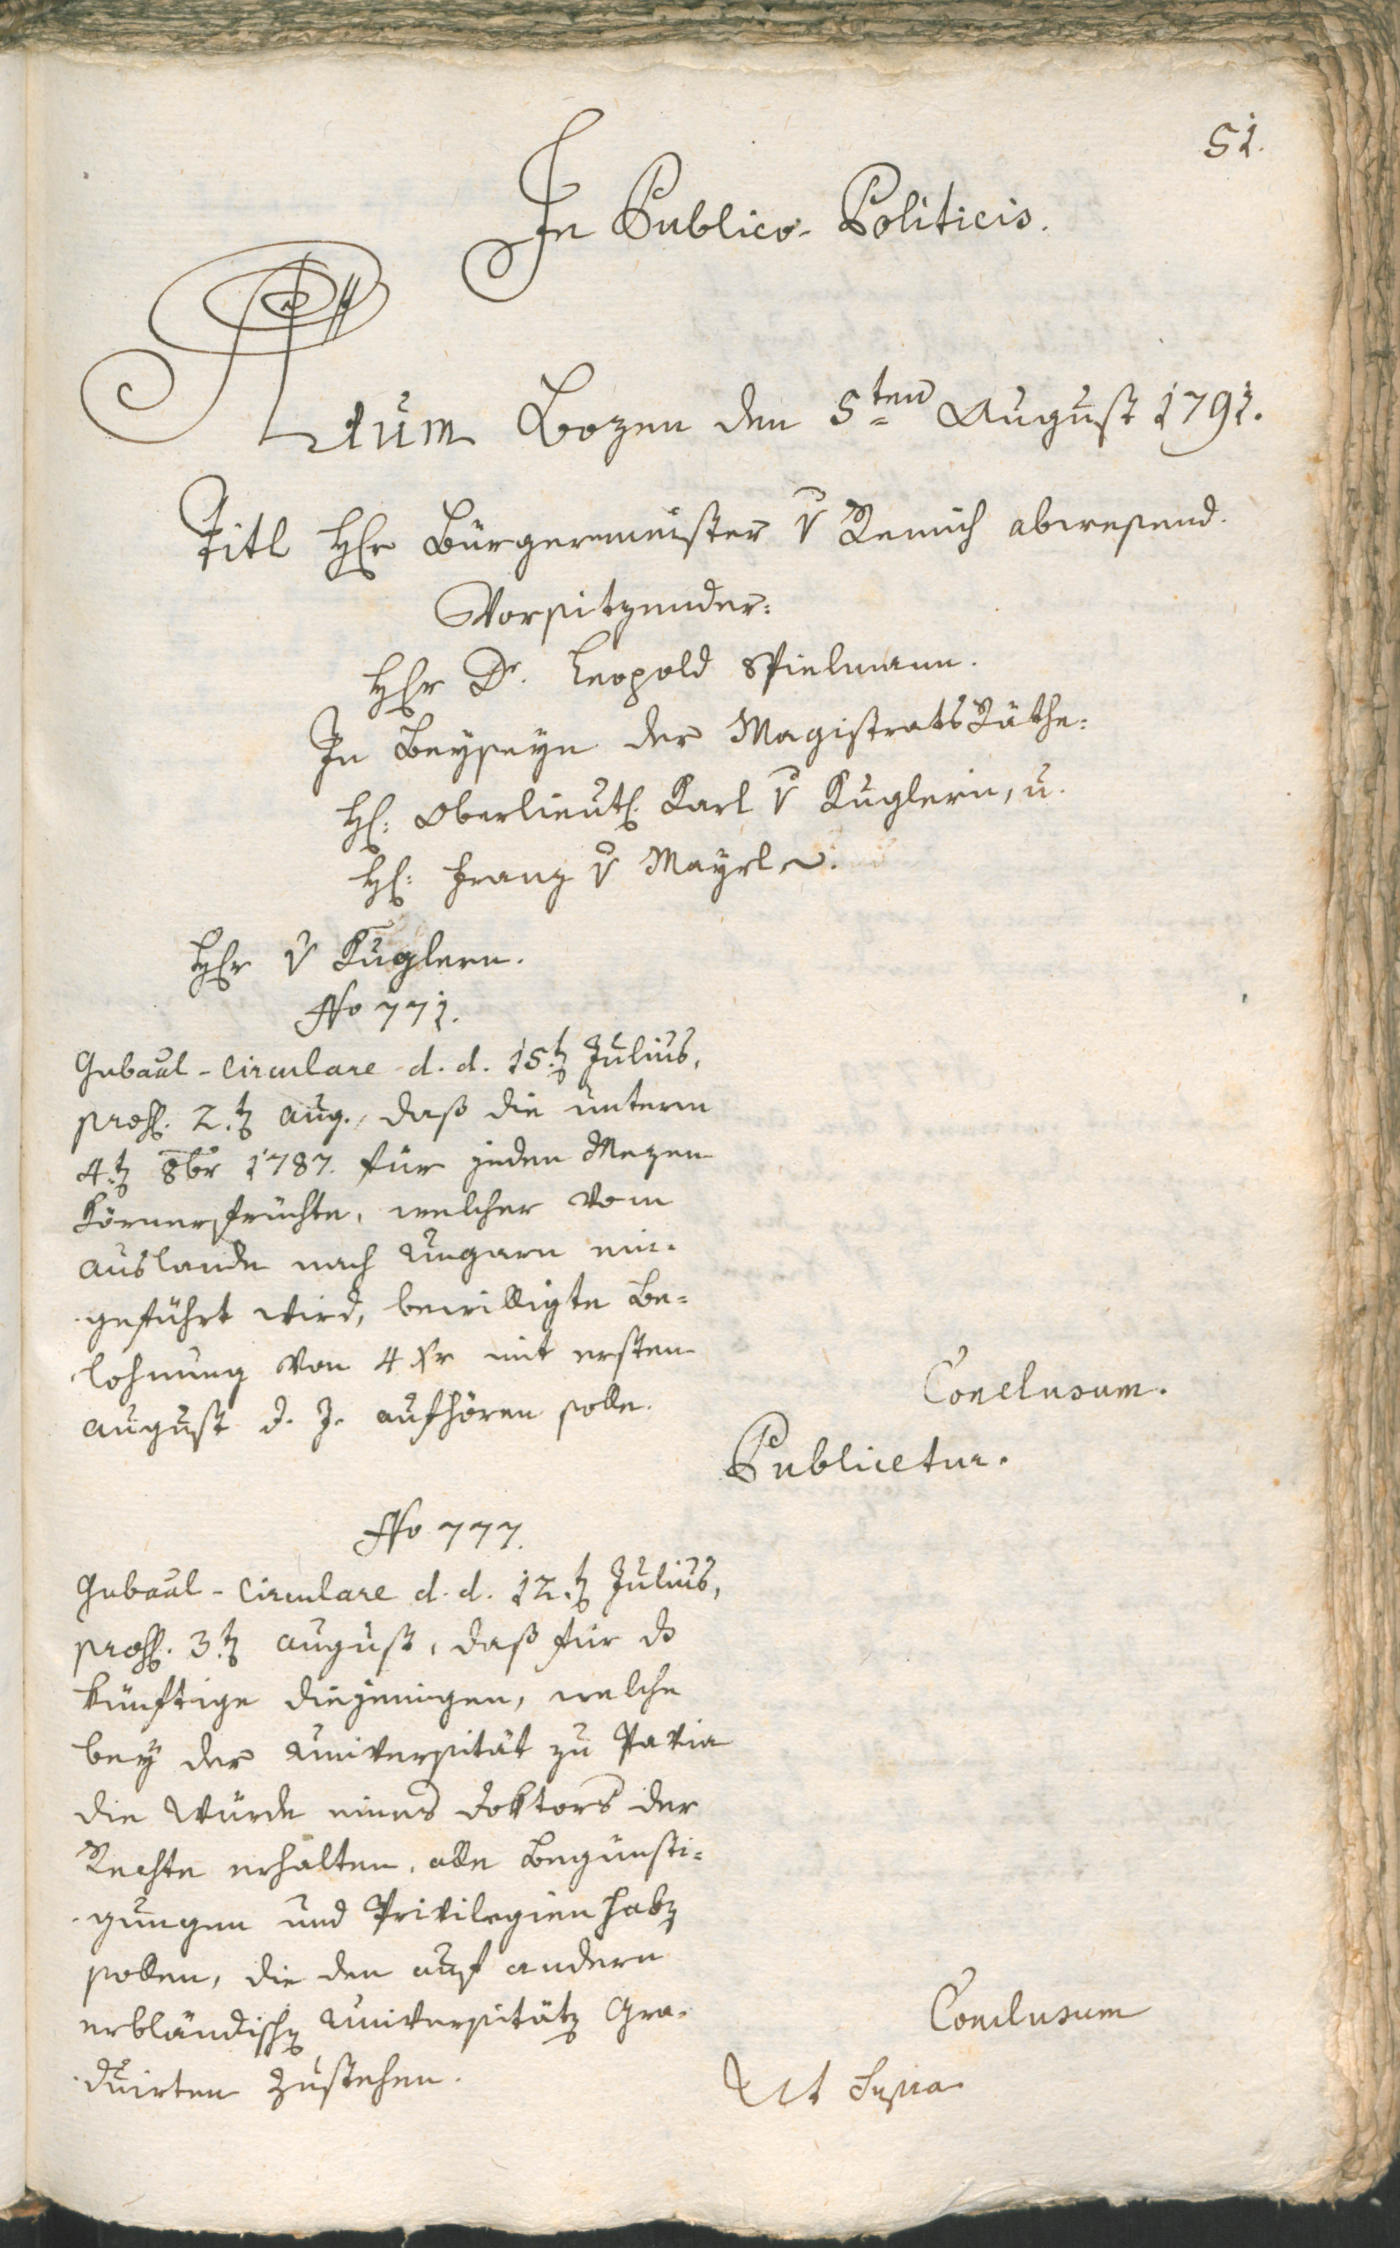 51.
In Publico-Politicis.
Actum Bozen den 5ten August 1791.
Titl HEr Bürgermeister v Remich abwesend.
Vorsitzender:
HEr Dr. Leopold Spielmann.
In Beyseyn der MagistratsRäthe:
H: Oberlieut. Karl v Kuglern, u.
H: Franz v Mayrl.
HEr v Kuglern.
No 771.
Gubaal-Circulare d. d. 15t Julius,
præs. 2t Aug., daß die unterm
4t 8br 1787. für jeden Mezen
Körnerfrüchte, welcher vom
Auslande nach Ungarn ein-
geführt wird, bewilligte Be-
lohnung von 4 Xr mit ersten
August d. J. aufhören solle.
Conclusum.
Publicetur.
No 777.
Gubaal-Circulare d. d. 12t Julius,
præs. 3t August, daß für das
künftige diejenigen, welche
bey der Universität zu Pavia
die Würde eines Doktors der
Rechte erhalten, alle Begünsti-
gungen und Privilegien haben
sollen, die den auf andern
erbländischen Universitäten Gra-
duirten zustehen.
Conclusum
Ut Supra